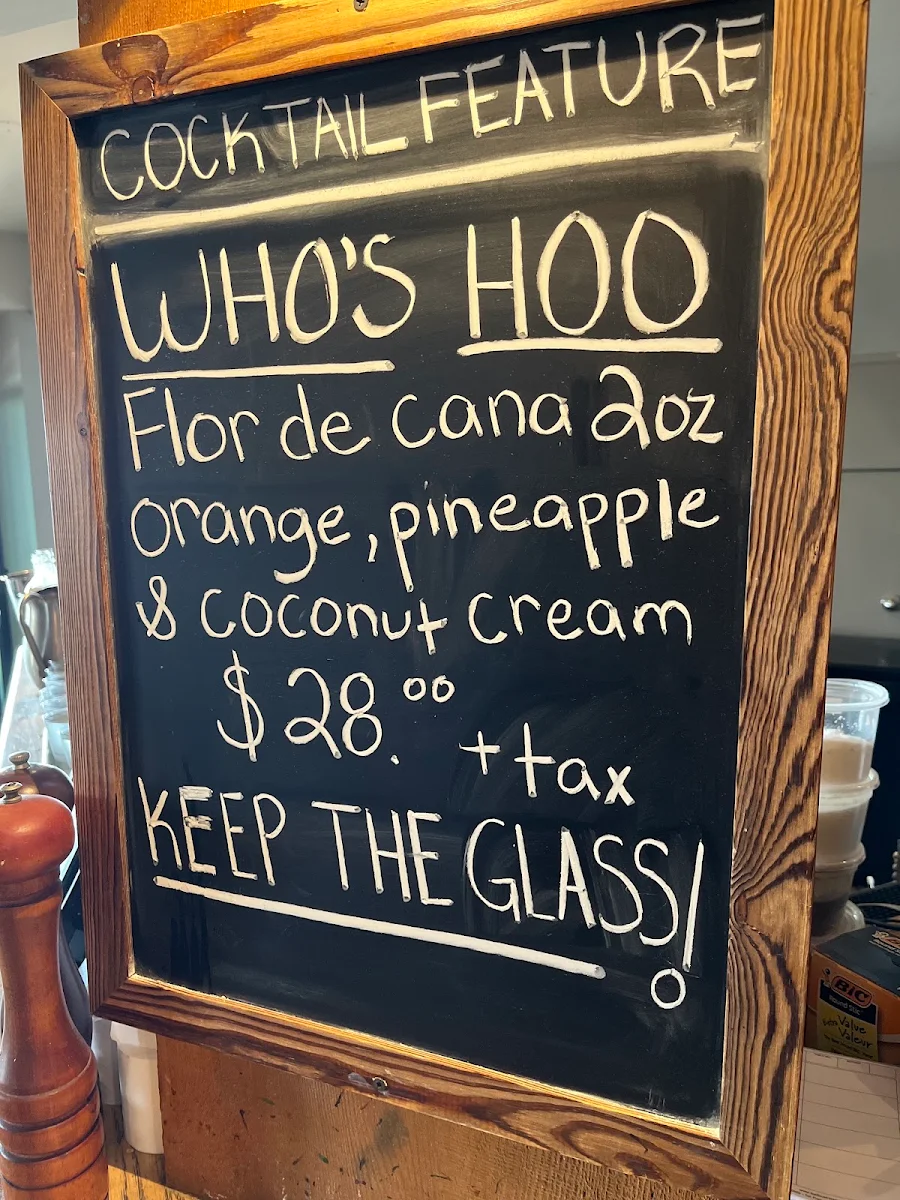 COCKTAIL FEATURE
WHO'S HOO
Flor de cana 2oz
orange, pineapple
& coconut cream
$28.00 + tax
KEEP THE GLASS!
BIC
Round Stic
Value
Valeur